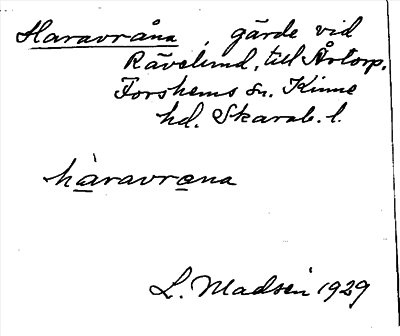 Haravråna, gärde vid
Rävelund, till Årtorp,
Forshems sn. Kinne
hd. Skarab. l.
hàravrana
L. Madsén 1929